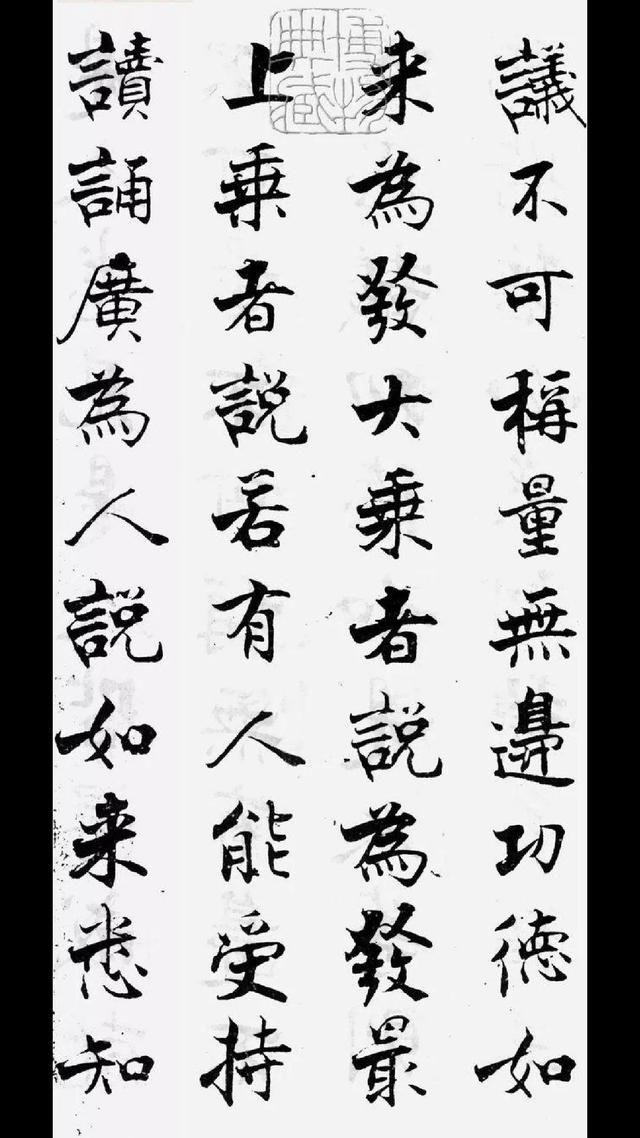 議不可稱量無邊功德如
来為發大乗者說為發最
上乗者說若有人能受持
讀誦廣為人說如来悉知